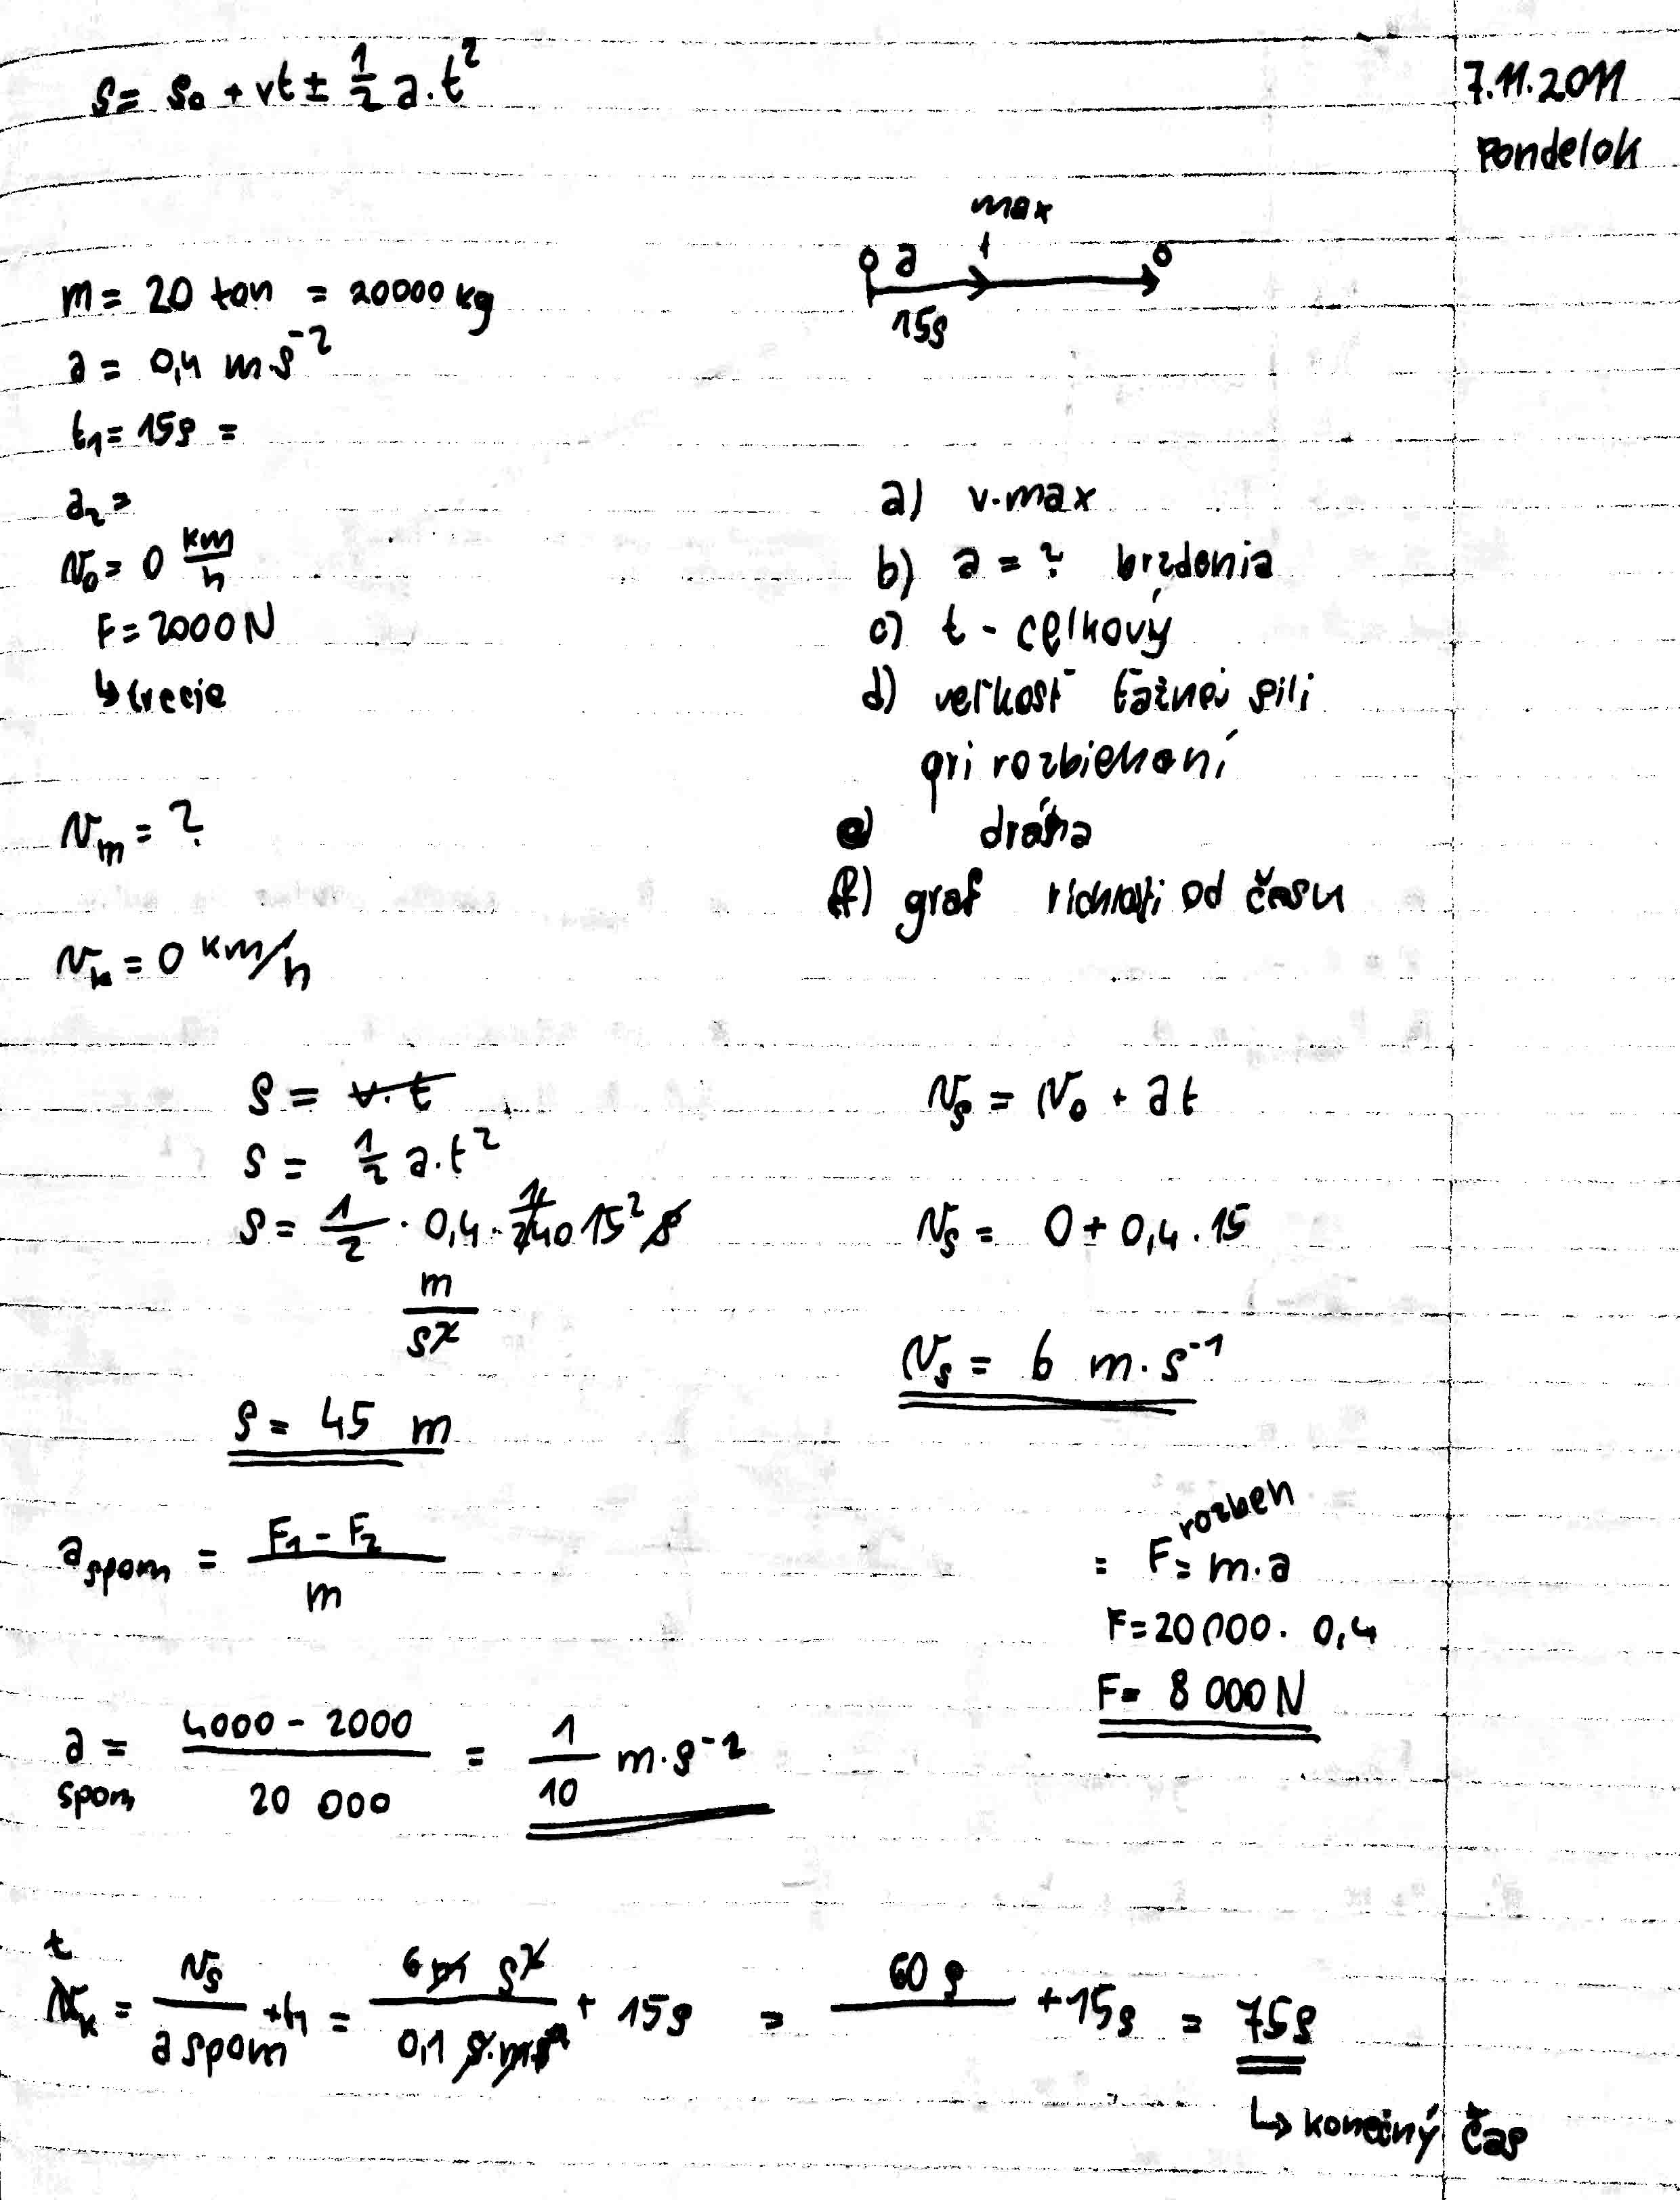 s = s₀ + vt ± 1/2 a.t²
7.11.2011
Pondelok
max
a
15s
m = 20 ton = 20000 kg
a = 0,4 m.s⁻²
t₁ = 15s =
a₂ =
v₀ = 0 km/h
F = 2000 N
↳ trecie
a) v.max
b) a = ? brzdenia
c) t - celkový
d) veľkosť ťažnej sili
pri rozbiehaní
e) dráha
f) graf od času
vₘ = ?
vₖ = 0 km/h
s = v.t
s = 1/2 a.t²
s = 1/2 . 0,4 . 15² s
m/s²
s = 45 m
vₛ = v₀ + at
vₛ = 0 + 0,4 . 15
vₛ = 6 m.s⁻¹
a spom = F₁ - F₂ / m
rozbeh
= F = m.a
F = 20 000 . 0,4
F = 8 000 N
a spom = 4000 - 2000 / 20 000 = 1/10 m.s⁻²
t
vₖ = vₛ / a spom + t₁ = 6 m s² / 0,1 + 15s = 60 s + 15s = 75s
↳ konečný čas